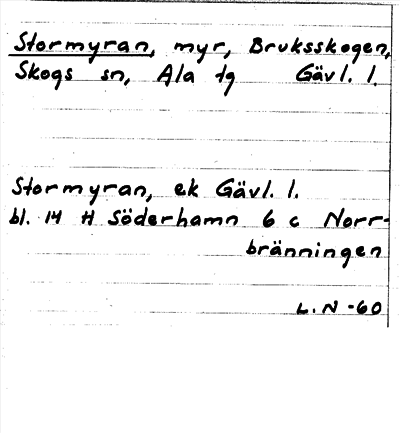 Stormyran, myr, Bruksskogen,
Skogs sn, Ala tg Gävl. l.
Stormyran, ek Gävl. l.
bl. 14 H Söderhamn 6 c Norr-
bränningen
L. N -60